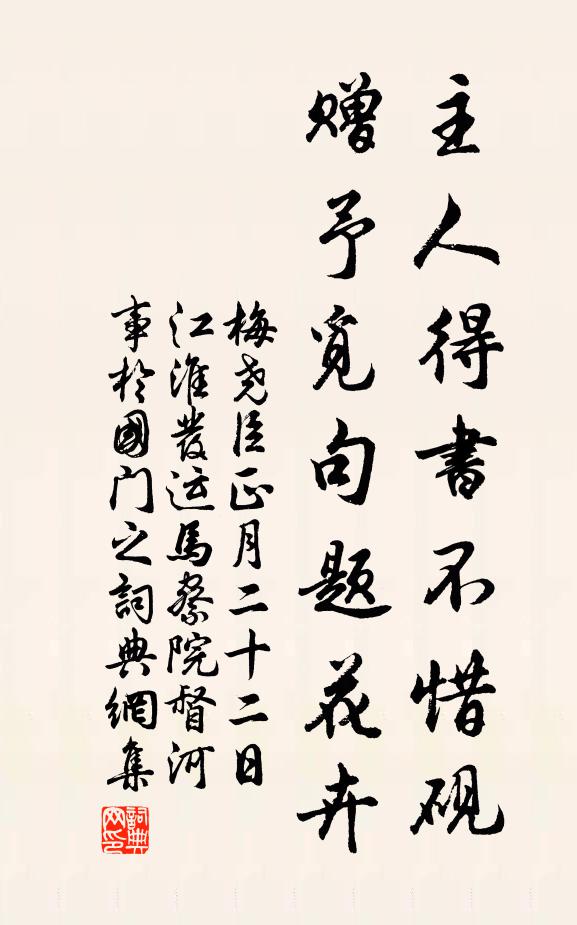 主人得書不惜硯
赠予覓句題花卉
梅尧臣正月二十二日
江淮發运馬察院督河
事於國門之詞典網集
詞典
网印